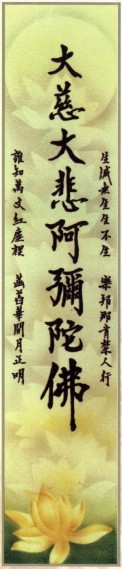 大慈大悲阿彌陀佛
生滅無生生不生
樂邦那肯禁人行
誰知萬丈紅塵裡
菡萏華開月正明